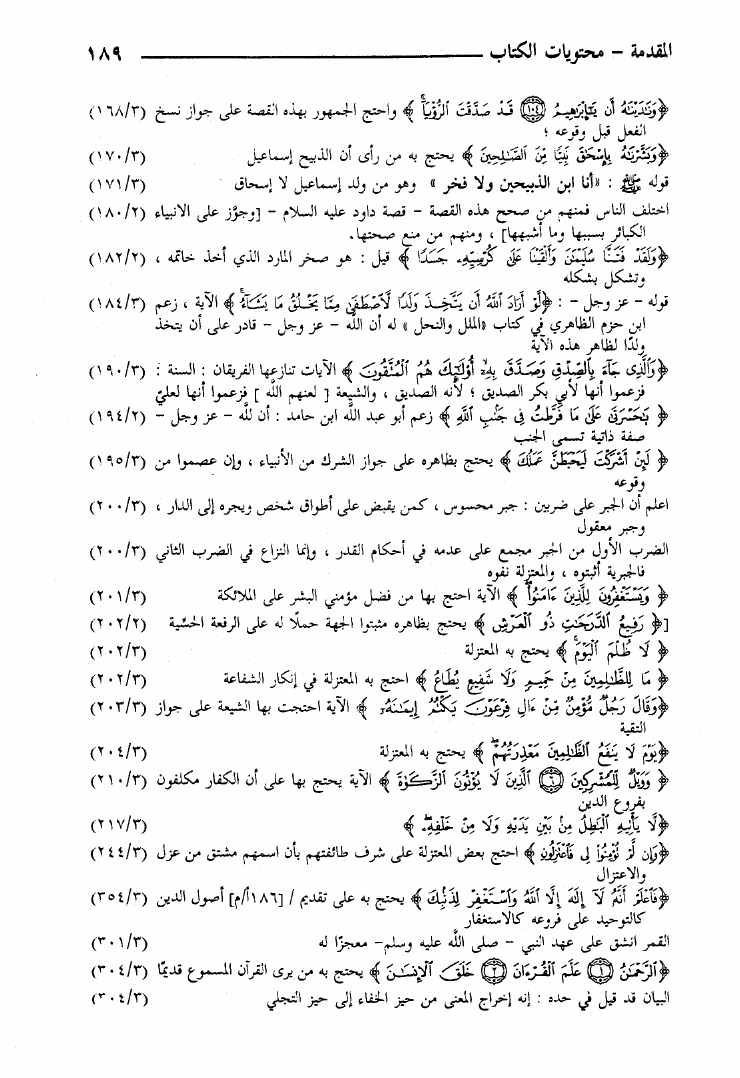 المقدمة - محتويات الكتاب ١٨٩
﴿وَنَٰدَيْنَٰهُ أَن يَٰٓإِبْرَٰهِيمُ ۝١٠٤ قَدْ صَدَّقْتَ ٱلرُّءْيَآ﴾ واحتج الجمهور بهذه القصة على جواز نسخ (١٦٨/٣)
الفعل قبل وقوعه ؛
﴿وَبَشَّرْنَٰهُ بِإِسْحَٰقَ نَبِيًّا مِّنَ ٱلصَّٰلِحِينَ﴾ يحتج به من رأى أن الذبيح إسماعيل (١٧٠/٣)
قوله ﷺ : «أنا ابن الذبيحين ولا فخر» وهو من ولد إسماعيل لا إسحاق (١٧١/٣)
اختلف الناس فمنهم من صحح هذه القصة - قصة داود عليه السلام - [وجوَّز على الانبياء (١٨٠/٢)
الكبائر بسببها وما أشبهها] ، ومنهم من منع صحتها.
﴿وَلَقَدْ فَتَنَّا سُلَيْمَٰنَ وَأَلْقَيْنَا عَلَىٰ كُرْسِيِّهِۦ جَسَدًا﴾ قيل : هو صخر المارد الذي أخذ خاتمه ، (١٨٢/٢)
وتشكل بشكله
قوله - عز وجل - : ﴿لَّوْ أَرَادَ ٱللَّهُ أَن يَتَّخِذَ وَلَدًا لَّٱصْطَفَىٰ مِمَّا يَخْلُقُ مَا يَشَآءُ﴾ الآية ، زعم (١٨٤/٣)
ابن حزم الظاهري في كتاب «الملل والنحل» له أن اللَّه - عز وجل - قادر على أن يتخذ
ولدًا لظاهر هذه الآية
﴿وَٱلَّذِى جَآءَ بِٱلصِّدْقِ وَصَدَّقَ بِهِۦٓ أُو۟لَٰٓئِكَ هُمُ ٱلْمُتَّقُونَ﴾ الآيات تنازعها الفريقان : السنة : (١٩٠/٣)
فزعموا أنها لأبي بكر الصديق ؛ لأنه الصديق ، والشيعة [ لعنهم اللَّه ] فزعموا أنها لعليّ
﴿يَٰحَسْرَتَىٰ عَلَىٰ مَا فَرَّطتُ فِى جَنۢبِ ٱللَّهِ﴾ زعم أبو عبد اللَّه ابن حامد : أن للَّه - عز وجل - (١٩٤/٢)
صفة ذاتية تسمى الجنب
﴿لَئِنْ أَشْرَكْتَ لَيَحْبَطَنَّ عَمَلُكَ﴾ يحتج بظاهره على جواز الشرك من الأنبياء ، وإن عصموا من (١٩٥/٣)
وقوعه
اعلم أن الجبر على ضربين : جبر محسوس ، كمن يقبض على أطواق شخص ويجره إلى الدار ، (٢٠٠/٣)
وجبر معقول
الضرب الأول من الجبر مجمع على عدمه في أحكام القدر ، وإنما النزاع في الضرب الثاني (٢٠٠/٣)
فالجبرية أثبتوه ، والمعتزلة نفوه
﴿وَيَسْتَغْفِرُونَ لِلَّذِينَ ءَامَنُوا۟﴾ الآية احتج بها من فضل مؤمني البشر على الملائكة (٢٠١/٣)
[﴿رَفِيعُ ٱلدَّرَجَٰتِ ذُو ٱلْعَرْشِ﴾ يحتج بظاهره مثبتوا الجهة حملًا له على الرفعة الحسّية (٢٠٢/٢)
﴿لَا ظُلْمَ ٱلْيَوْمَ﴾ يحتج به المعتزلة (٢٠٢/٣)
﴿مَا لِلظَّٰلِمِينَ مِنْ حَمِيمٍ وَلَا شَفِيعٍ يُطَاعُ﴾ احتج به المعتزلة في إنكار الشفاعة (٢٠٢/٣)
﴿وَقَالَ رَجُلٌ مُّؤْمِنٌ مِّنْ ءَالِ فِرْعَوْنَ يَكْتُمُ إِيمَٰنَهُۥٓ﴾ الآية احتجت بها الشيعة على جواز (٢٠٣/٣)
التقية
﴿يَوْمَ لَا يَنفَعُ ٱلظَّٰلِمِينَ مَعْذِرَتُهُمْ﴾ يحتج به المعتزلة (٢٠٤/٣)
﴿وَوَيْلٌ لِّلْمُشْرِكِينَ ۝٦ ٱلَّذِينَ لَا يُؤْتُونَ ٱلزَّكَوٰةَ﴾ الآية يحتج بها على أن الكفار مكلفون (٢١٠/٣)
بفروع الدين
﴿لَّا يَأْتِيهِ ٱلْبَٰطِلُ مِنۢ بَيْنِ يَدَيْهِ وَلَا مِنْ خَلْفِهِۦ﴾ (٢١٧/٣)
﴿وَإِن لَّمْ تُؤْمِنُوا۟ لِى فَٱعْتَزِلُونِ﴾ احتج بعض المعتزلة على شرف طائفتهم بأن اسمهم مشتق من عزل (٢٤٤/٣)
والاعتزال
﴿فَٱعْلَمْ أَنَّهُۥ لَآ إِلَٰهَ إِلَّا ٱللَّهُ وَٱسْتَغْفِرْ لِذَنۢبِكَ﴾ يحتج به على تقديم / [١٨٦أ/م] أصول الدين (٣٥٤/٣)
كالتوحيد على فروعه كالاستغفار
القمر انشق على عهد النبي - صلى اللَّه عليه وسلم- معجزًا له (٣٠١/٣)
﴿ٱلرَّحْمَٰنُ ۝١ عَلَّمَ ٱلْقُرْءَانَ ۝٢ خَلَقَ ٱلْإِنسَٰنَ﴾ يحتج به من يرى القرآن المسموع قديمًا (٣٠٤/٣)
البيان قد قيل في حده : إنه إخراج المعنى من حيز الخفاء إلى حيز التجلي (٣٠٤/٣)